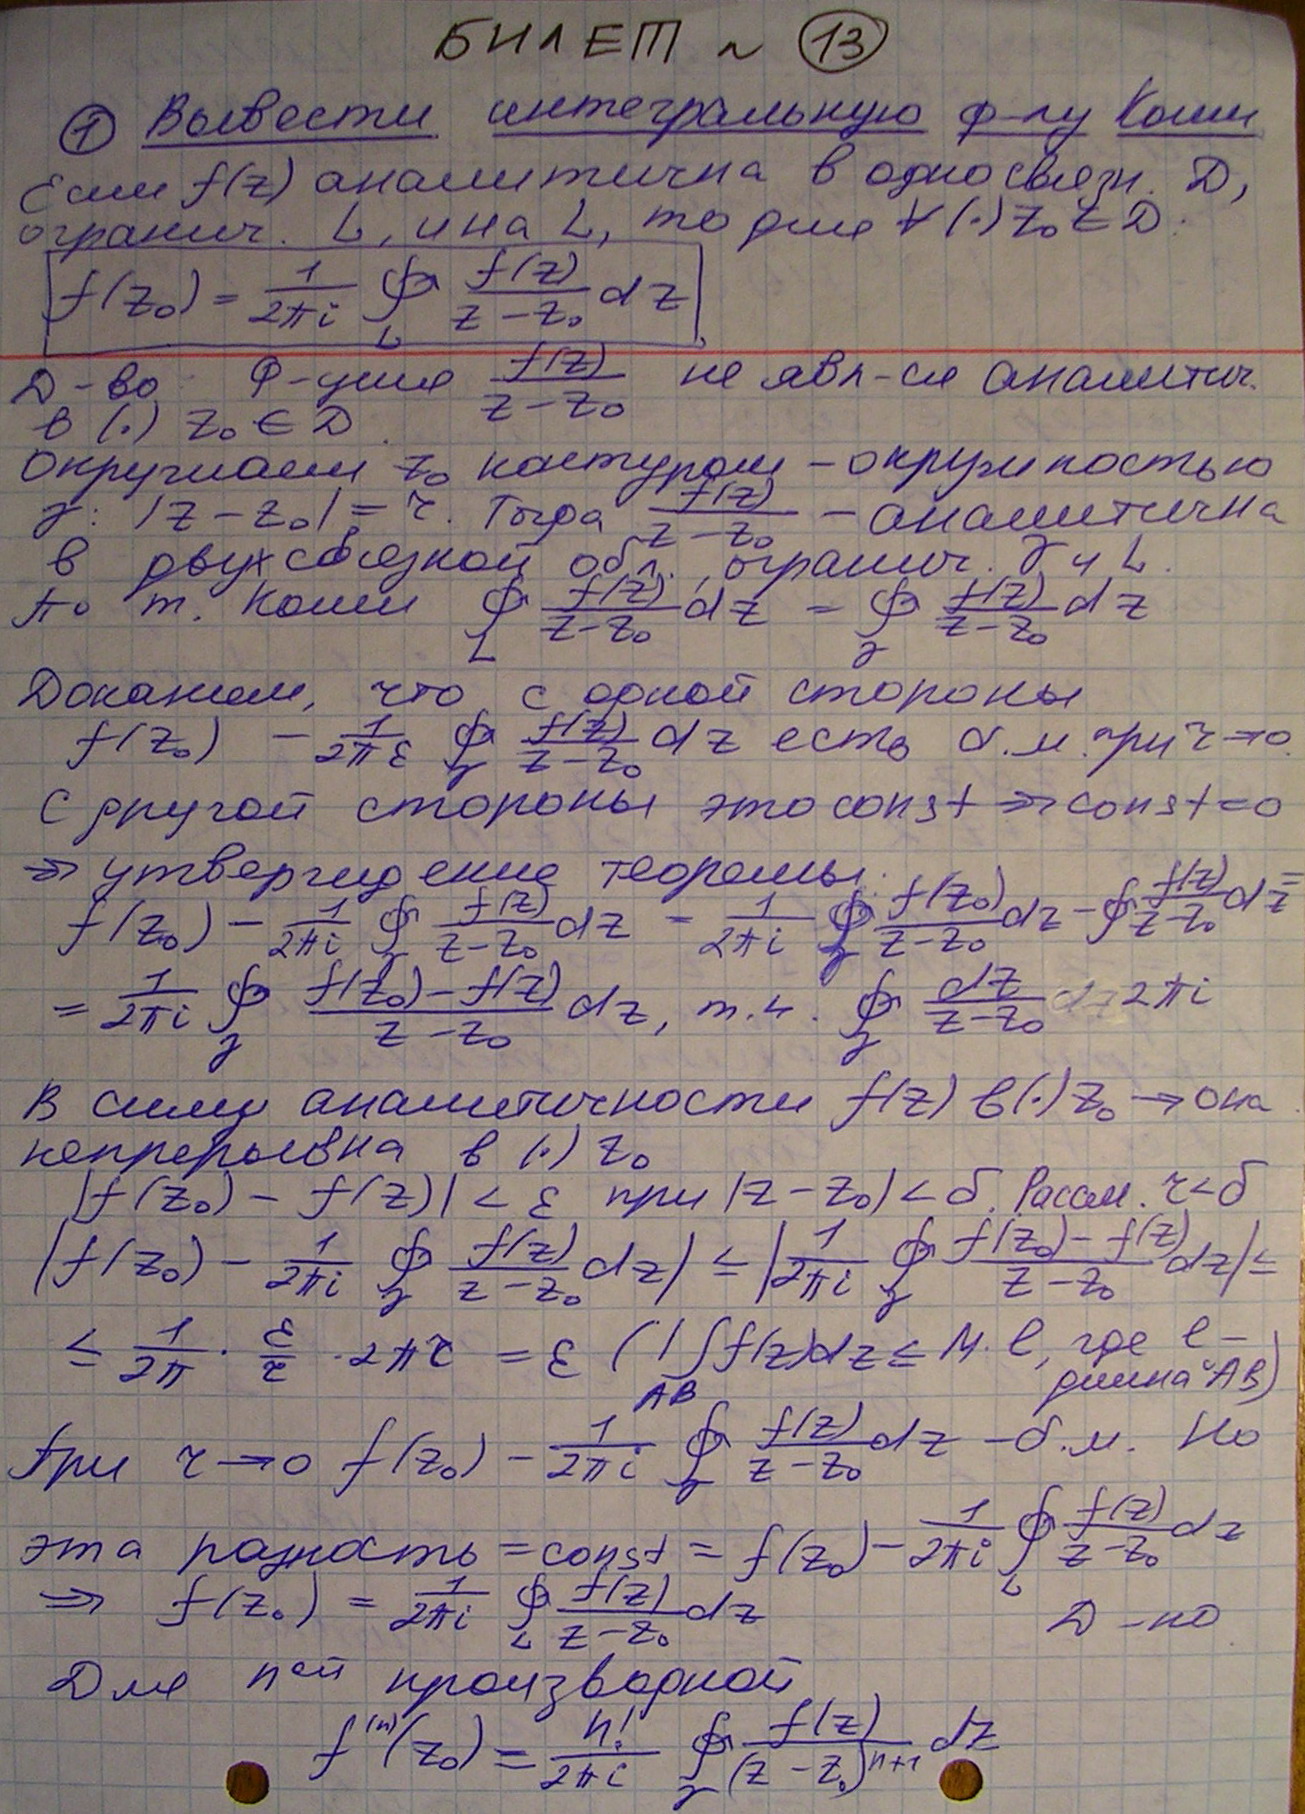 БИЛЕТ ~ (13)
① Вывести интегральную ф-лу Коши
Если f(z) аналитична в односвязн. D,
огранич. L, и на L, то для ∀(·) z₀ ∈ D:
f(z₀) = 1/(2πi) ∮_L f(z)/(z-z₀) dz
Д-во Ф-ция f(z)/(z-z₀) не явл-ся аналитич.
в (·) z₀ ∈ D.
Окружаем z₀ контуром - окружностью
γ: |z-z₀| = r. Тогда f(z)/(z-z₀) - аналитична
в двухсвязной обл., огранич. γ и L.
По т. Коши ∮_L f(z)/(z-z₀) dz = ∮_γ f(z)/(z-z₀) dz
Докажем, что с одной стороны
f(z₀) - 1/(2πi) ∮_γ f(z)/(z-z₀) dz есть б.м. при r→0.
С другой стороны это const ⇒ const=0
⇒ утверждение теоремы.
f(z₀) - 1/(2πi) ∮_γ f(z)/(z-z₀) dz = 1/(2πi) ∮_γ f(z₀)/(z-z₀) dz - ∮ f(z)/(z-z₀) dz =
= 1/(2πi) ∮_γ (f(z₀)-f(z))/(z-z₀) dz, т.к. ∮_γ dz/(z-z₀) 2πi
В силу аналитичности f(z) в (·) z₀ → она
непрерывна в (·) z₀
|f(z₀) - f(z)| < ε при |z-z₀| < δ. Рассм. r<δ
|f(z₀) - 1/(2πi) ∮_γ f(z)/(z-z₀) dz| ≤ |1/(2πi) ∮_γ (f(z₀)-f(z))/(z-z₀) dz| ≤
≤ 1/(2π) · ε/r · 2πr = ε (|∫_AB f(z)dz ≤ M·l, где l -
длина ᵕAB)
При r→0 f(z₀) - 1/(2πi) ∮_γ f(z)/(z-z₀) dz - б.м. Но
эта разность = const = f(z₀) - 1/(2πi) ∮_L f(z)/(z-z₀) dz
⇒ f(z₀) = 1/(2πi) ∮_L f(z)/(z-z₀) dz Д-но
Для nой производной
f⁽ⁿ⁾(z₀) = n!/(2πi) ∮_γ f(z)/(z-z₀)ⁿ⁺¹ dz